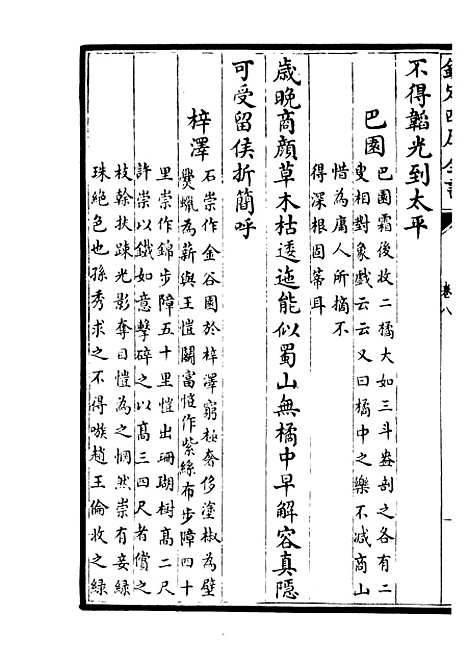 欽定四庫全書
卷八
不得韜光到太平
巴園
巴園霜後收二橘大如三斗盎剖之各有二
叟相對象戲云云又曰橘中之樂不减商山
惜為庸人所摘不
得深根固蒂耳
歲晚商顔草木枯逶迤能似蜀山無橘中早解容真隠
可受留侯折簡呼
梓澤
石崇作金谷園於梓澤窮極奢侈塗椒為壁
㸑蠟為薪與王愷鬬富愷作紫絲布步障四十
里崇作錦步障五十里愷出珊瑚樹髙二尺
許崇以鐵如意擊碎之以髙三四尺者償之
枝幹扶踈光影奪目愷為之惘然崇有妾緑
珠絶色也孫秀求之不得嗾趙王倫收之緑